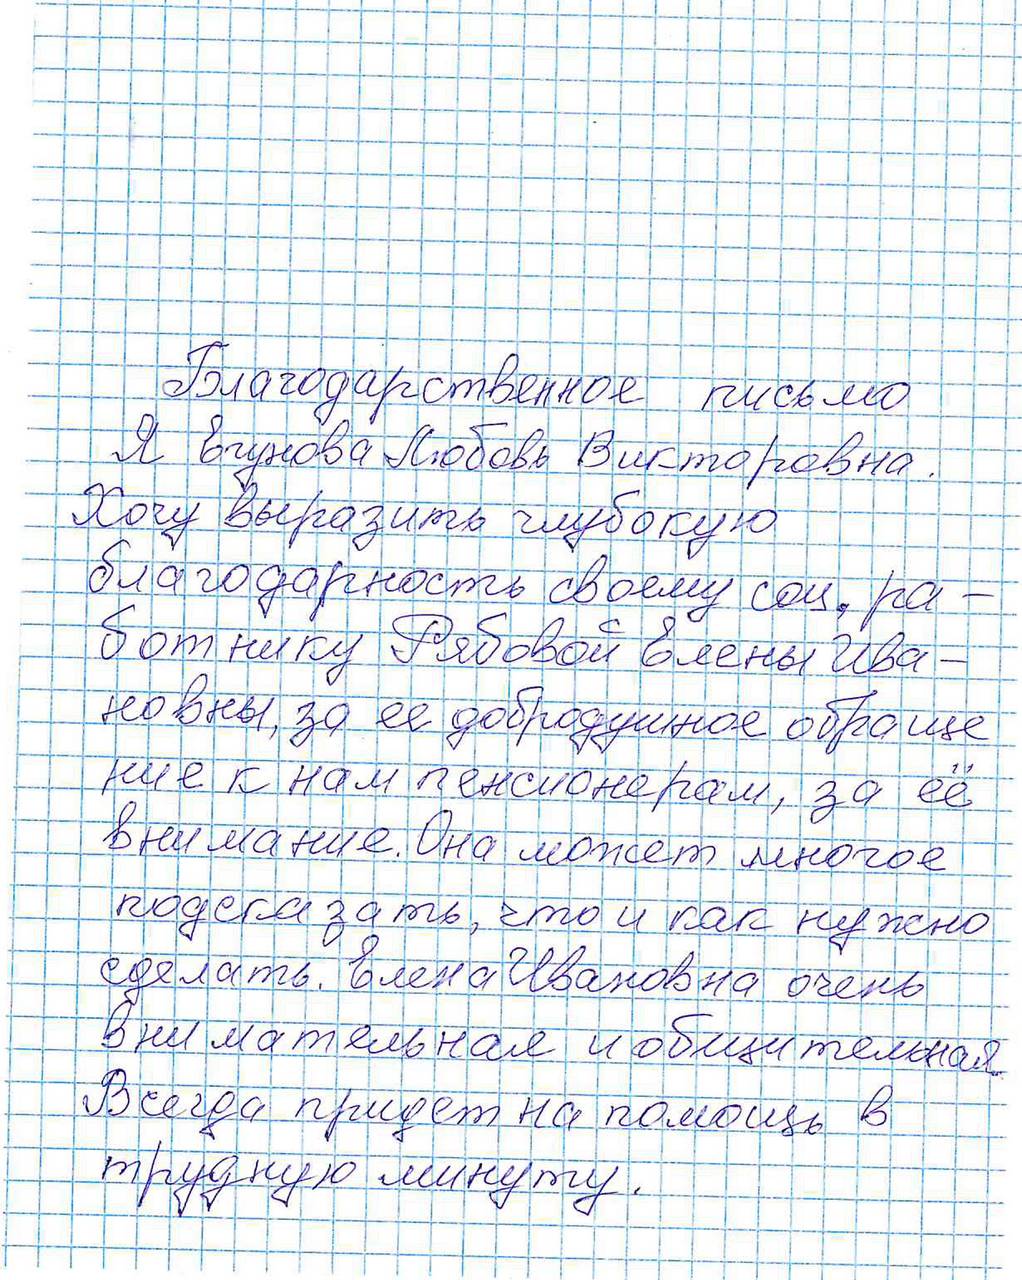 Благодарственное письмо
Я Егунова Любовь Викторовна.
Хочу выразить глубокую
благодарность своему соц. ра-
ботнику Рябовой Елены Ива-
новны, за ее добродушное обраще
ние к нам пенсионерам, за её
внимание. Она может многое
подсказать, что и как нужно
сделать. Елена Ивановна очень
внимательная и общительная.
Всегда придет на помощь в
трудную минуту.